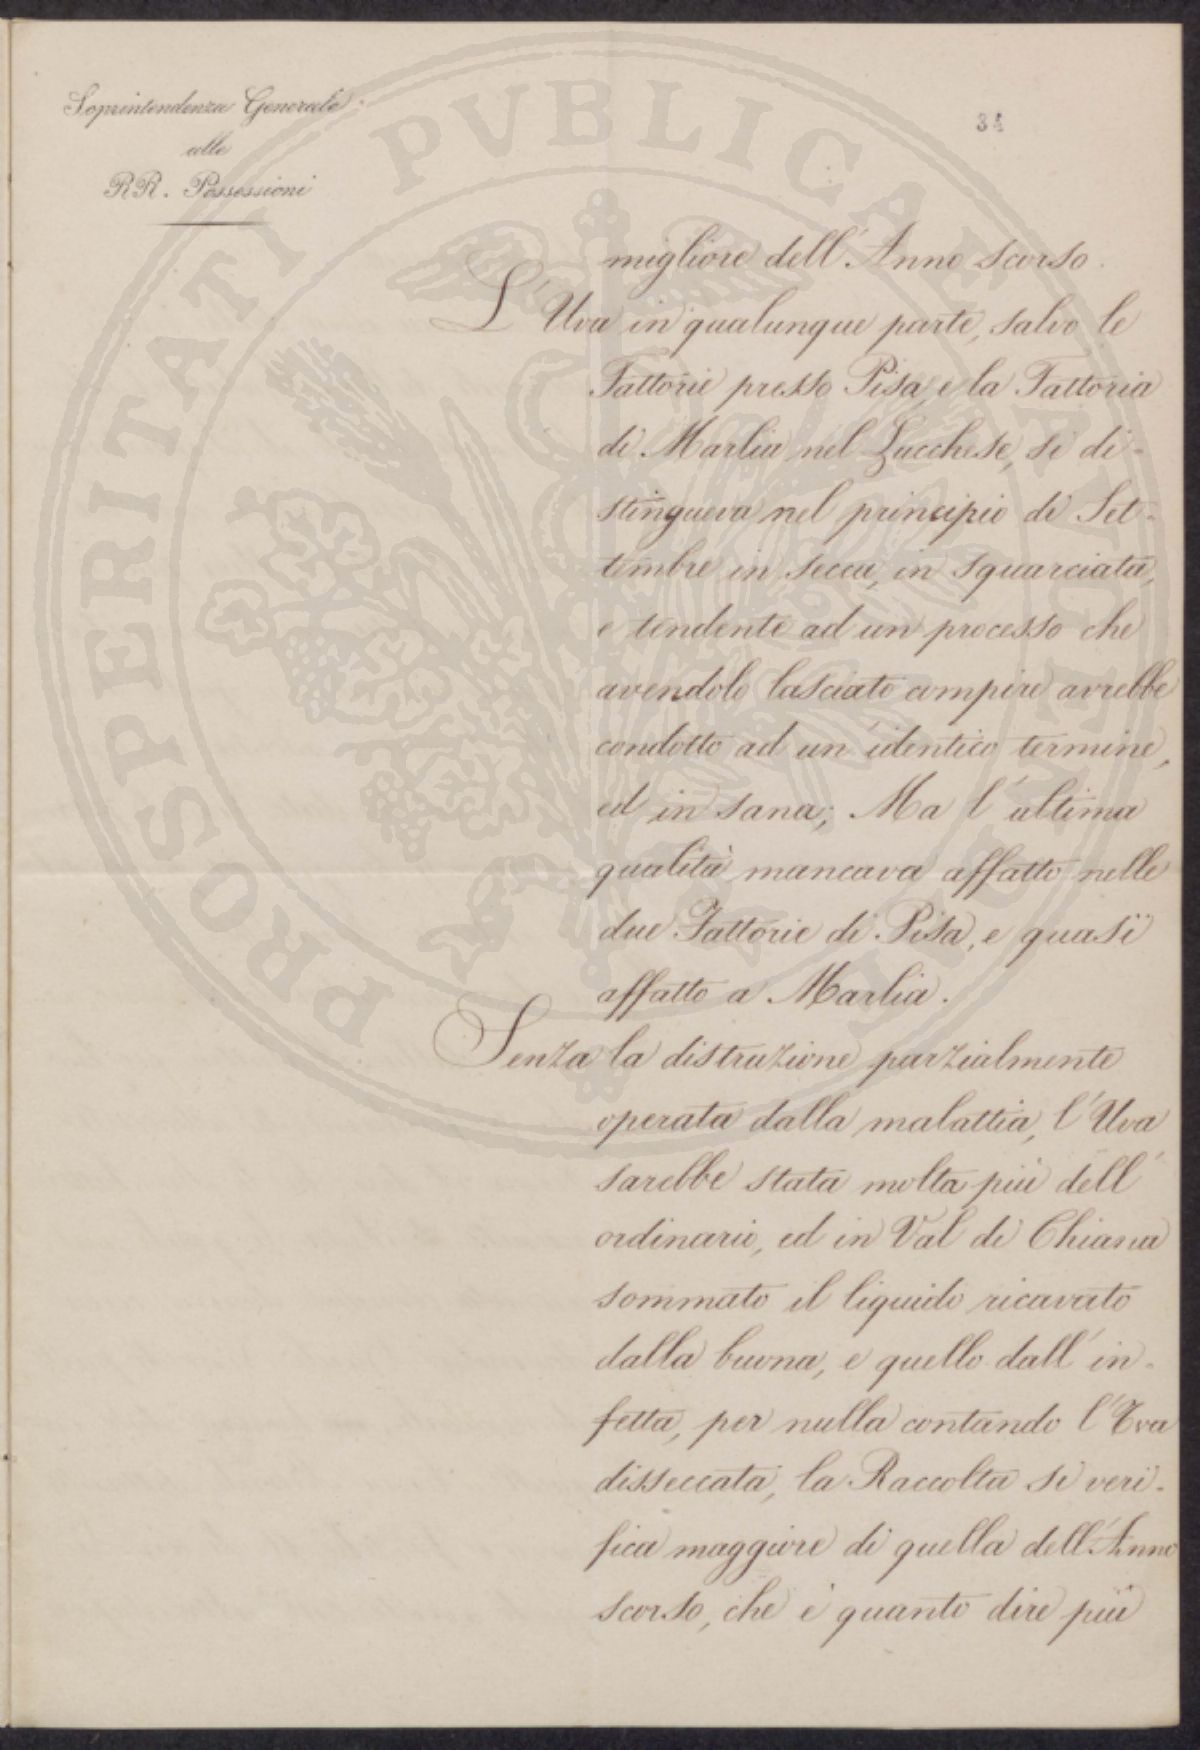 Soprintendenza Generale
alle
RR. Possessioni
34
migliore dell'Anno scorso.
L'Uva in qualunque parte, salvo le
Fattorie presso Pisa, e la Fattoria
di Marlia nel Lucchese, si di-
stingueva nel principio di Set-
tembre in secca, in squarciata,
e tendente ad un processo che
avendolo lasciato compire avrebbe
condotto ad un'identico termine,
ed in sana; Ma l'ultima
qualità mancava affatto nelle
due Fattorie di Pisa, e quasi
affatto a Marlia.
Senza la distruzione parzialmente
operata dalla malattia, l'Uva
sarebbe stata molta più dell'
ordinario, ed in Val di Chiana
sommato il liquido ricavato
dalla buona, e quello dall'in-
fetta, per nulla contando l'Uva
disseccata, la Raccolta si veri-
fica maggiore di quella dell'Anno
scorso, che è quanto dire più
PROSPERITATI PVBLICAE